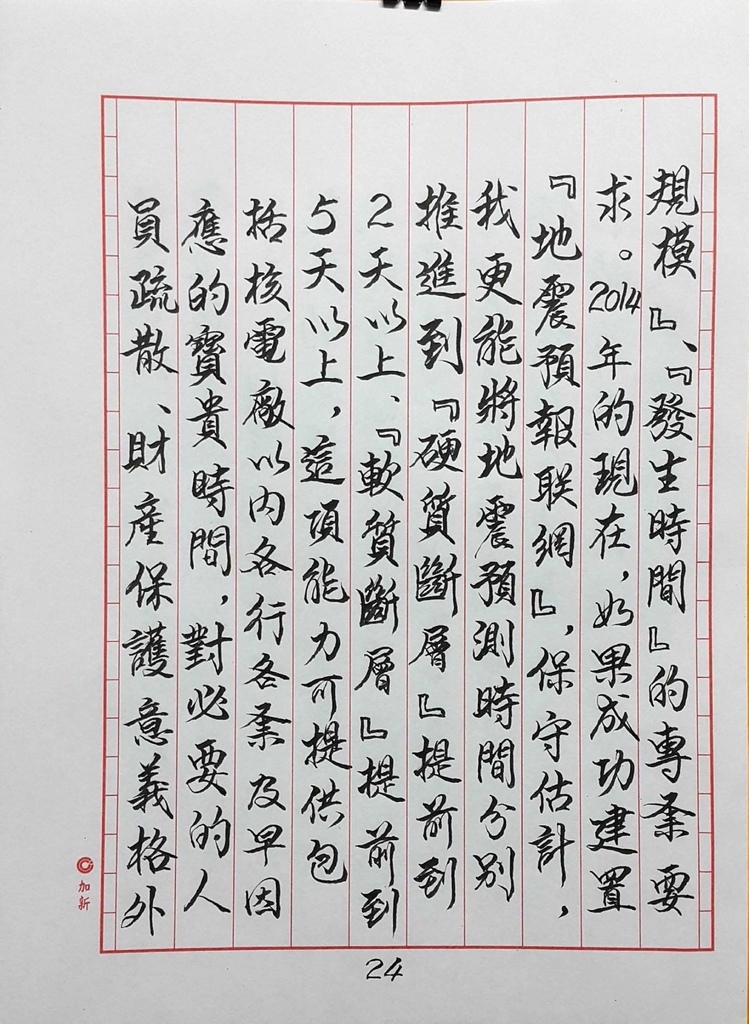 規模』、『發生時間』的專業要
求。2014年的現在,如果成功建置
『地震預報联網』,保守估計,
我更能將地震預測時間分別
推進到『硬質斷層』提前到
2天以上、『軟質斷層』提前到
5天以上,這項能力可提供包
括核電廠以內各行各業及早因
應的寶貴時間,對必要的人
員疏散、財產保護意義格外
加新
24